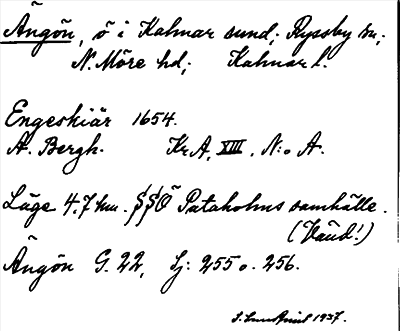 Ängön, ö i Kalmar sund; Ryssby sn;
N. Möre hd; Kalmar l.
Engeskiär 1654.
A. Bergh. Kr A, XIII, N:o A.
Läge 4,7 km. SSO Pataholms samhälle.
(Vänd!)
Ängön G. 22, Lj: 255 o. 256.
1937.